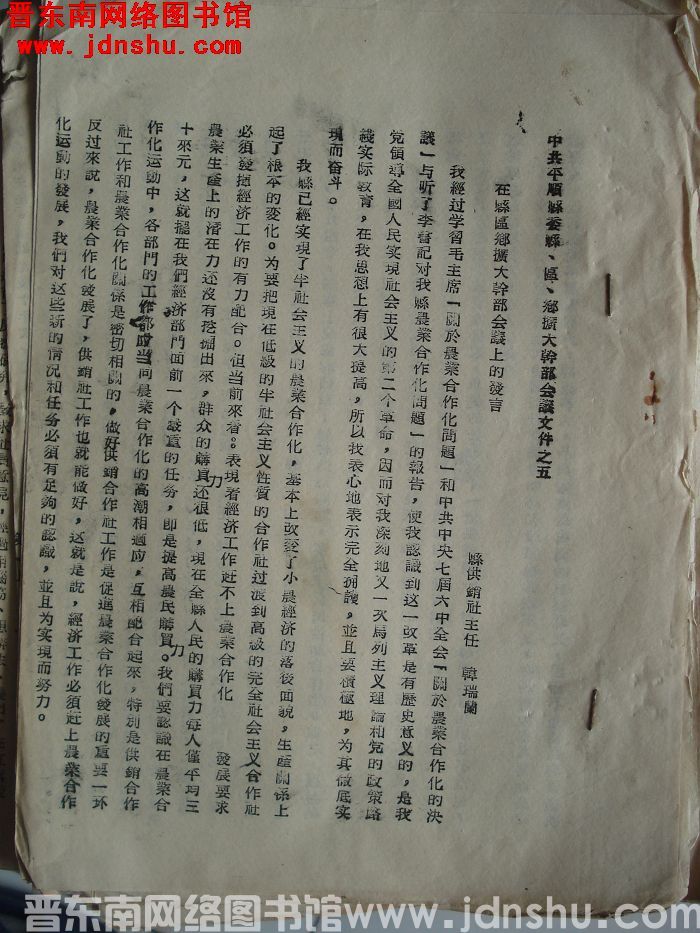 晋东南网络图书馆
www.jdnshu.com
中共平順縣委縣、區、鄉擴大幹部会議文件之五
在縣區鄉擴大幹部会議上的發言
縣供銷社主任 韓瑞蘭
我經过学習毛主席「關於農業合作化問題」和中共中央七屆六中全会「關於農業合作化的決
議」与听了李書記对我縣農業合作化問題」的報告，使我認識到这一改革是有歷史意义的，是我
党領導全國人民实現社会主义的第二个革命，因而对我深刻地又一次馬列主义理論和党的政策路
綫实际教育，在我思想上有很大提高，所以我表心地表示完全拥護，並且要積極地，为其徹底实
現而奋斗。
我縣已經实現了半社会主义的農業合作化，基本上改变了小農經济的落後面貌，生產關係上
起了根本的变化。为要把現在低級的半社会主义性質的合作社过渡到高級的完全社会主义合作社
必須發揮經济工作的有力配合。但当前來看：表現着經济工作赶不上農業合作化 發展要求
農業生產上的潛在力还沒有挖掘出來，群众的購買力还很低，現在全縣人民的購買力每人僅平均三
十來元，这就擺在我們經济部門面前一个嚴重的任务，即是提高農民購買力。我們要認識在農業合
作化运动中，各部門的工作都应当向農業合作化的高潮相適应，互相配合起來，特别是供銷合作
社工作和農業合作化關係是密切相關的，做好供銷合作社工作是促進農業合作化發展的重要一环
反过來說，農業合作化發展了，供銷社工作也就能做好，这就是說，經济工作必須赶上農業合作
化运動的發展，我們对这些新的情况和任务必須有足夠的認識，並且为实現而努力。
晋东南网络图书馆 www.jdnshu.com